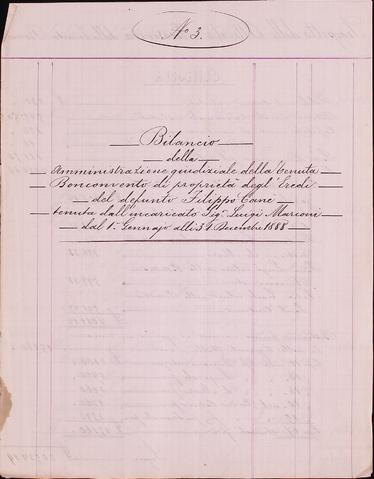 N.º 3.
Bilancio
della
Amministrazione giudiziale della Tenuta
Bonconvento di proprietà degl'Eredi
del defunto Filippo Cane
tenuta dall'incaricato Sig.r Luigi Marconi
dal 1.º Gennajo alli 31 Decembre 1888